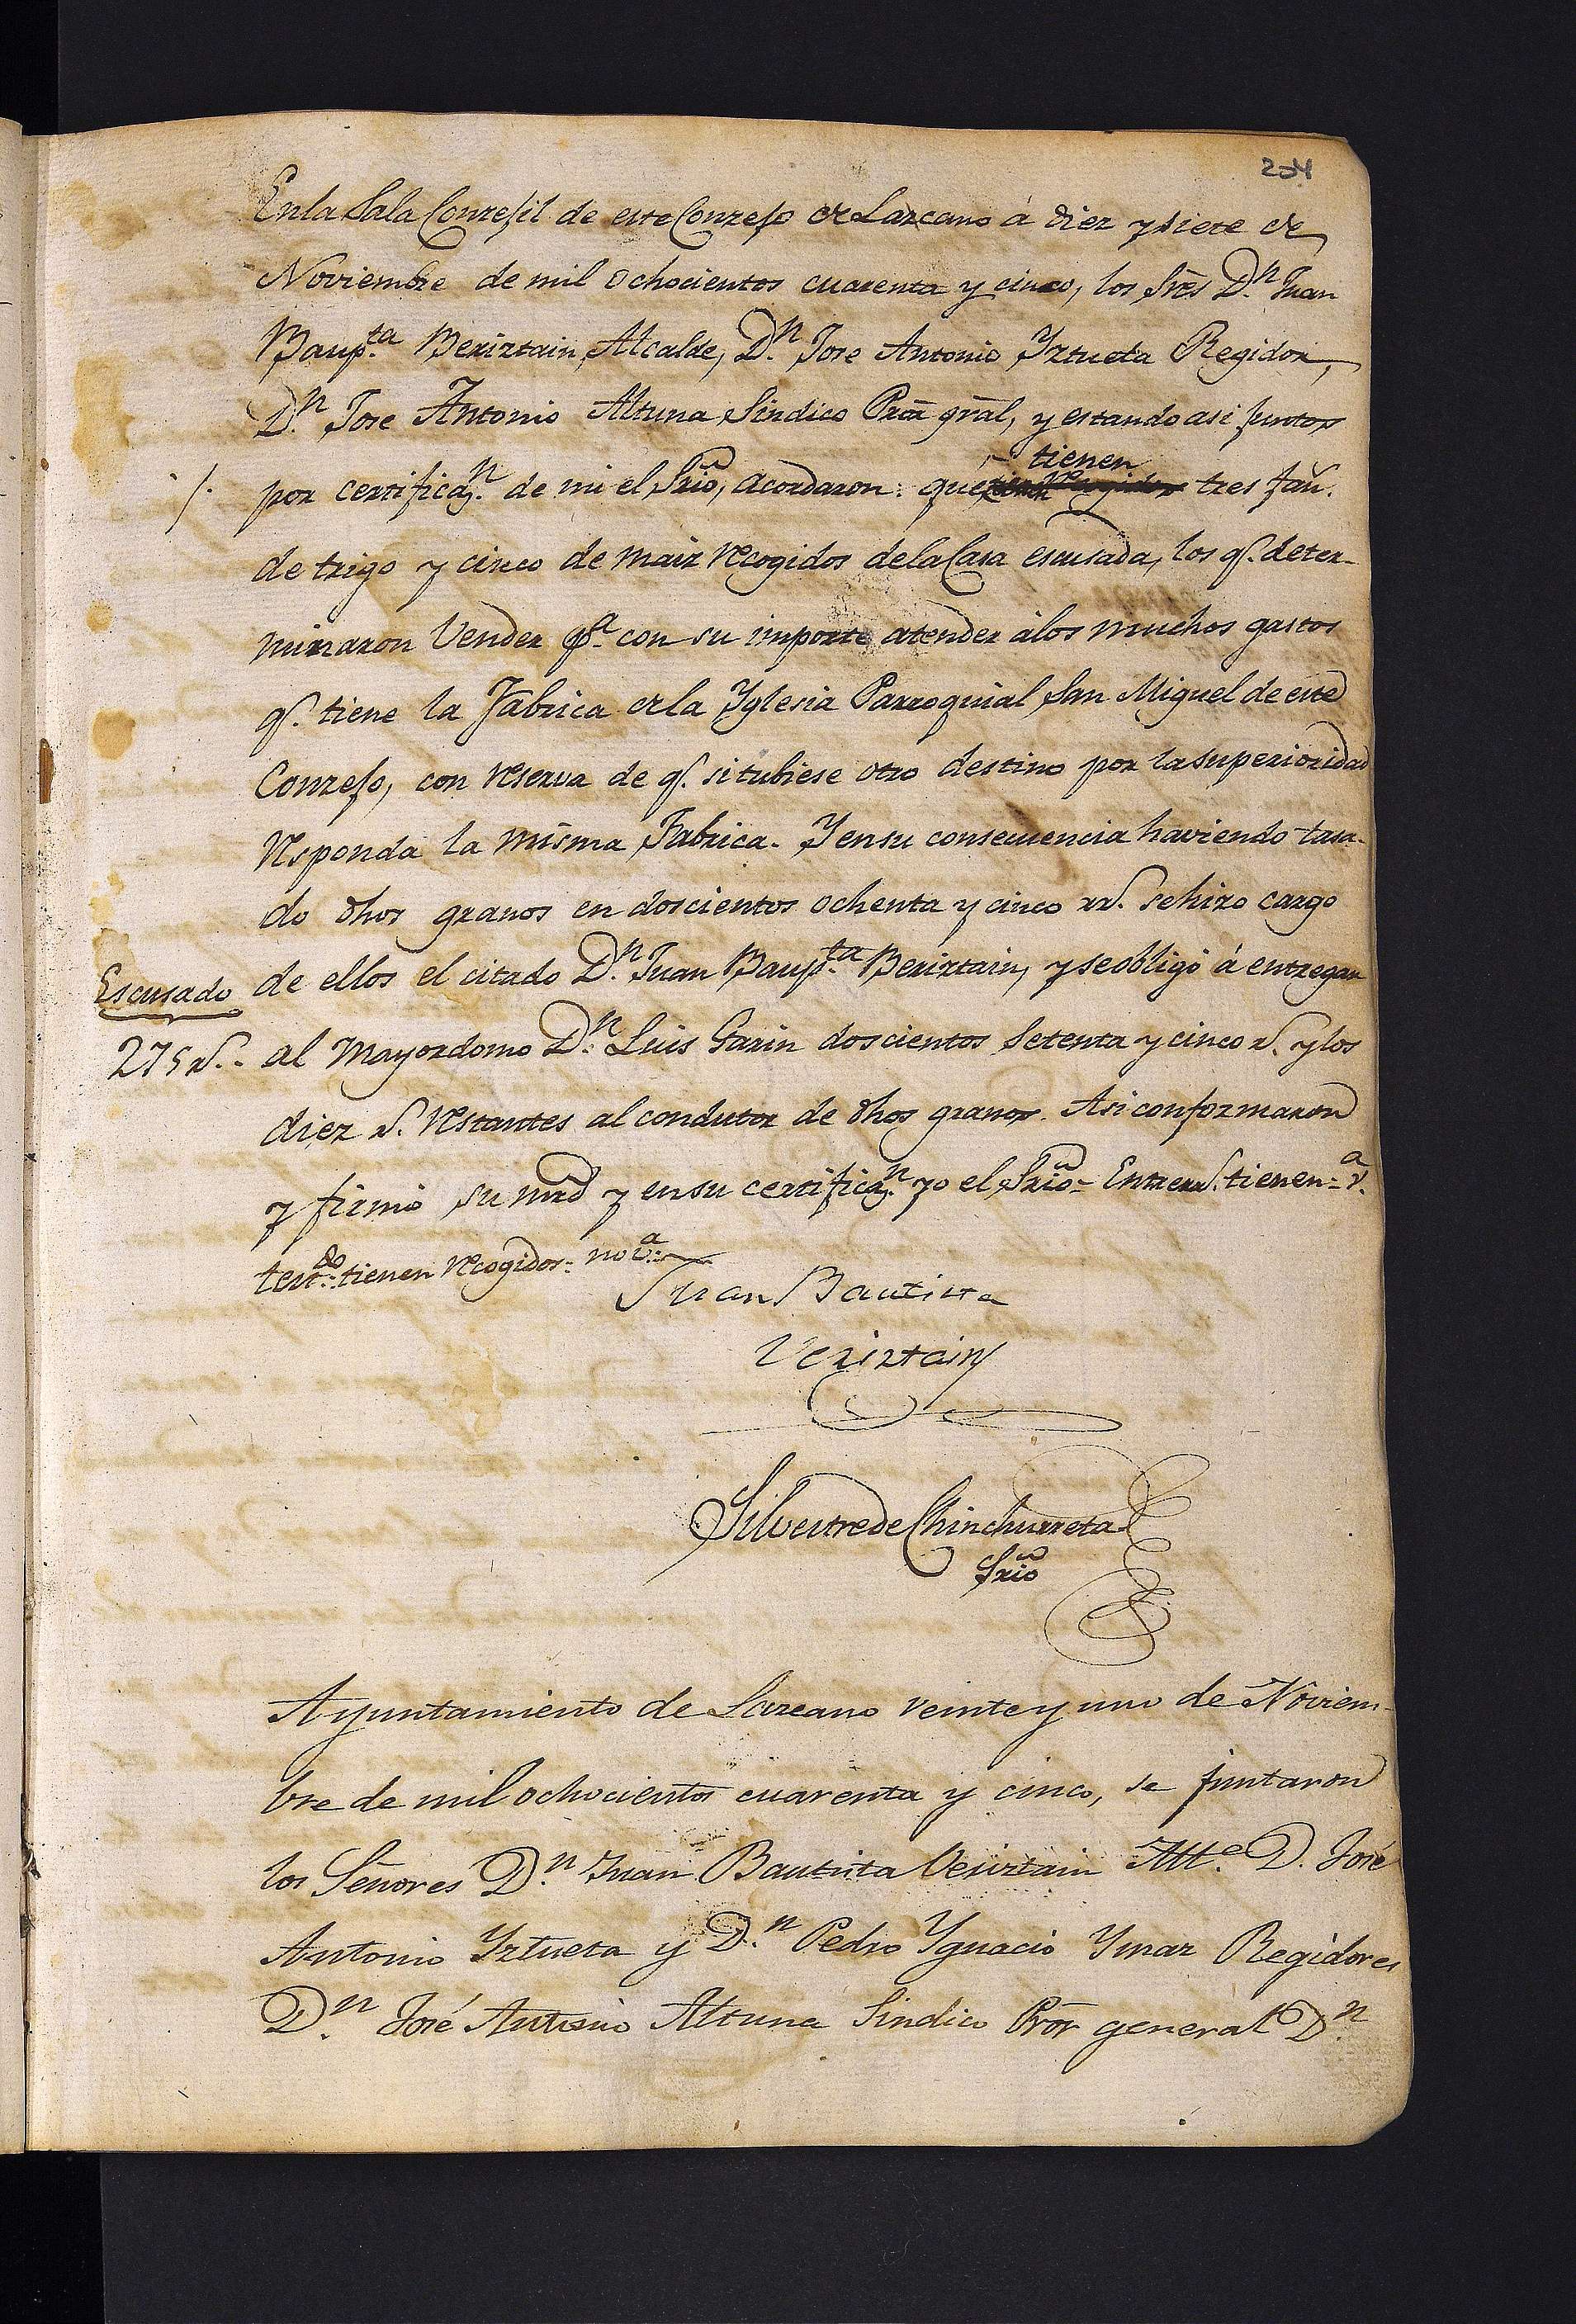 204
En la Sala Conzejil de este Conzejo de Lazcano á diez y siete de
Noviembre de mil ochocientos cuarenta y cinco, los Sres Dn. Juan
Baupta. Beriztain Alcalde, Dn. Jose Antonio Yztueta Regidor,
Dn. Jose Antonio Altuna Sindico Pror gral, y estando asi juntos
tienen
por certificazn. de mi el Srio, acordaron: que tienen recogidos tres fan.
de trigo y cinco de maiz recogidos de la Casa escusada, los q. deter-
minaron Vender pa. con su importe atender á los muchos gastos
q. tiene la Fabrica de la Yglesia Parroquial San Miguel de este
Conzejo, con reserva de q. si tubiese otro destino por la superioridad
responda la misma Fabrica. Y en su consecuencia haviendo tasa-
do dhos granos en doscientos ochenta y cinco rs. se hizo cargo
de ellos el citado Dn. Juan Baupta. Beriztain, y se obligó á entregar
Escusado
275 rs.. al Mayordomo Dn. Luis Garin doscientos Setenta y cinco rs. y los
diez rs. restantes al condutor de dhos granos. Asi conformaron
y firmó su mrd y en su certificazn. yo el Srio = Entrers. tienen = va.
testdo.: tienen recogidos = no va.
Juan Bautista
Veriztain
Silvestre de Chinchurreta
Srio
Ayuntamiento de Lazcano veinte y uno de Noviem-
bre de mil ochocientos cuarenta y cinco, se juntaron
los Señores Dn. Juan Bautista Veriztain Alle. D. José
Antonio Yztueta y Dn. Pedro Ygnacio Ymaz Regidores
Dn. José Antonio Altuna Sindico Pror general Dn.